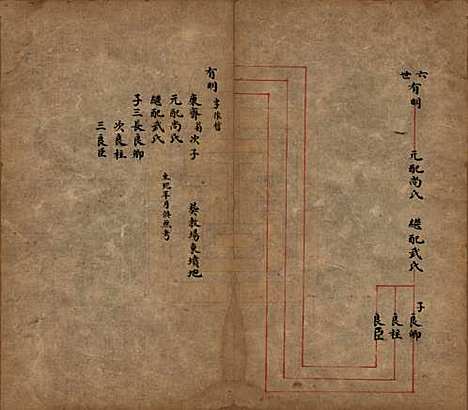 六世
有明
元配尚氏
繼配武氏
子良卿
良柱
良臣
有明
字
東齋翁次子
元配尚氏
繼配武氏
子三長良卿
次良柱
三良臣
生
年月
考
葬教場東墳地